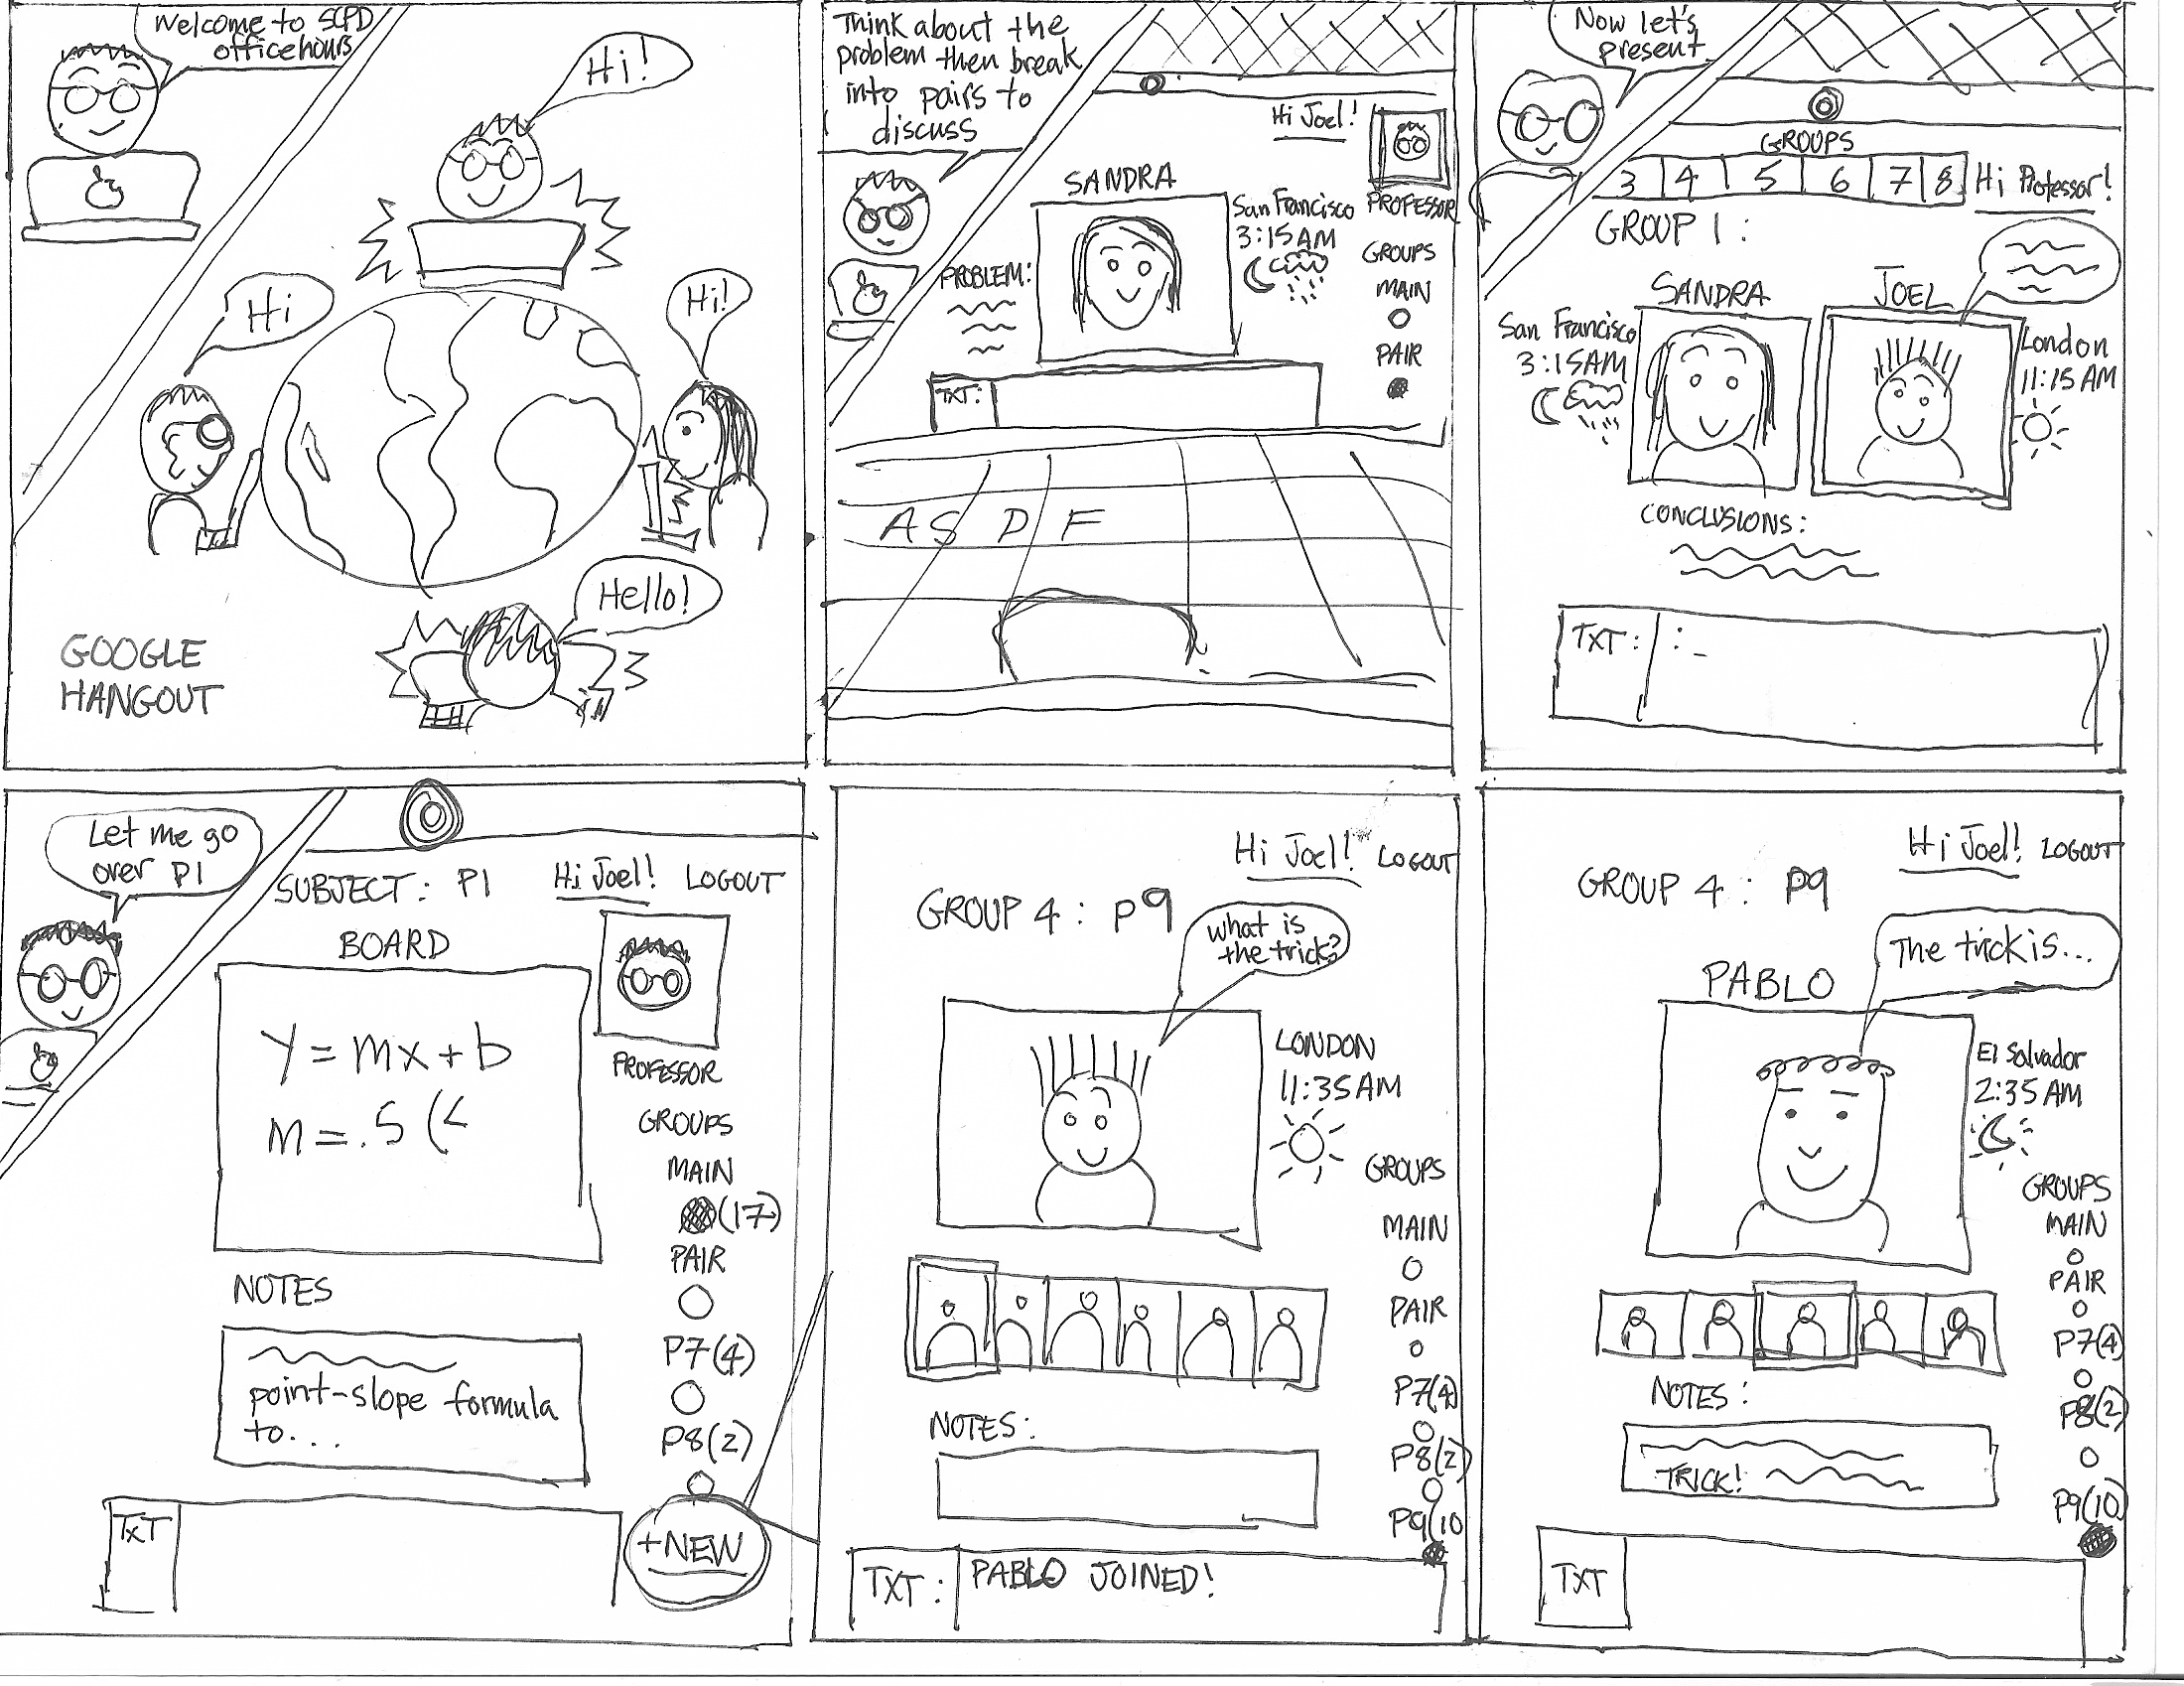 Welcome to SCPD
office hours
Hi!
Hi
Hi!
Hello!
GOOGLE
HANGOUT
Think about the
problem then break
into pairs to
discuss
Hi Joel!
SANDRA
San Francisco
3:15AM
PROFESSOR
PROBLEM:
GROUPS
MAIN
PAIR
TXT:
A S D F
Now let's
present
GROUPS
3 4 5 6 7 8
Hi Professor!
GROUP 1:
SANDRA
JOEL
San Francisco
3:15AM
London
11:15 AM
CONCLUSIONS:
TXT: :_
Let me go
over P1
SUBJECT: P1
Hi Joel!
LOGOUT
BOARD
y = mx + b
m = .5 (<
PROFESSOR
GROUPS
MAIN
(17)
PAIR
P7(4)
P8(2)
NOTES
point-slope formula
to...
TXT
+NEW
Hi Joel!
LOGOUT
GROUP 4: P9
what is
the trick?
LONDON
11:35AM
GROUPS
MAIN
PAIR
P7(4)
P8(2)
P9(10
NOTES:
TXT: PABLO JOINED!
Hi Joel!
LOGOUT
GROUP 4: P9
The trick is...
PABLO
El Salvador
2:35AM
GROUPS
MAIN
PAIR
P7(4)
P8(2)
P9(10)
NOTES:
TRICK!
TXT